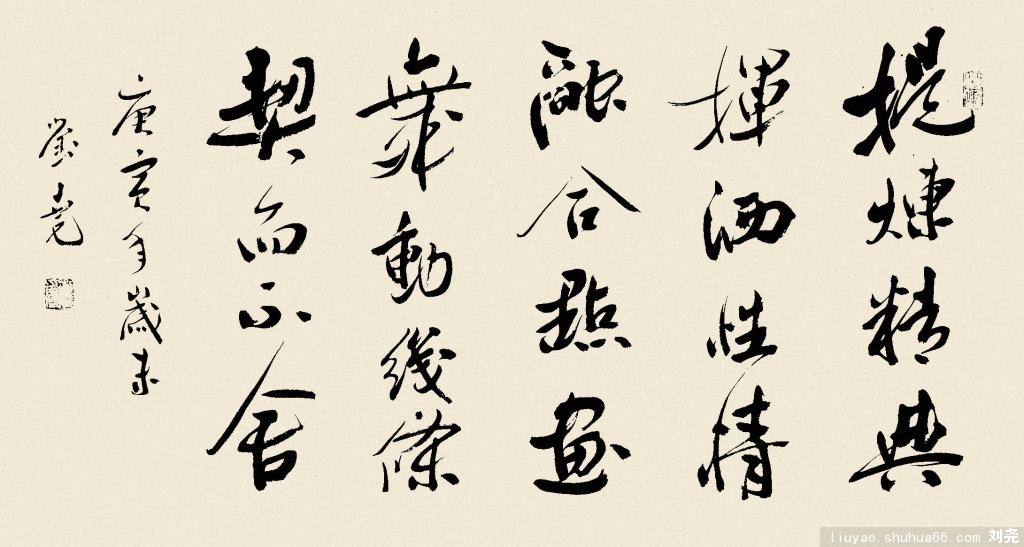 提煉精典
揮洒性情
融合點畫
舞動綫條
契而不舍
庚寅年歲末
劉堯
liuyao.shuhua66.com 刘尧